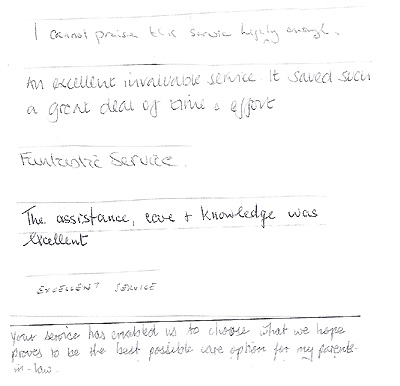 I cannot praise this service highly enough.
An excellent invaluable service. It saved such
a great deal of time & effort
Fantastic Service.
The assistance, care + knowledge was
excellent
EXCELLENT SERVICE
Your service has enabled us to choose what we hope
proves to be the best possible care option for my parents-
in-law.